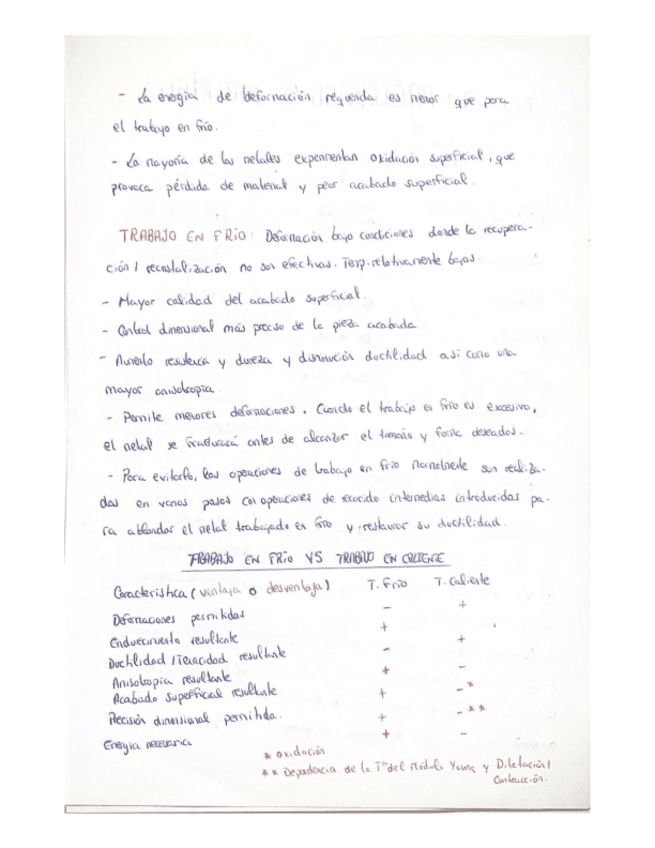 - La energía de deformación requerida es menor que para
el trabajo en frío.
- La mayoría de los metales experimentan oxidación superficial, que
provoca pérdida de material y peor acabado superficial.
TRABAJO EN FRÍO: Deformación bajo condiciones donde la recupera-
ción / recristalización no son efectivas. Temp. relativamente bajas.
- Mayor calidad del acabado superficial.
- Control dimensional más preciso de la pieza acabada
- Aumento resistencia y dureza y disminución ductilidad así como una
mayor anisotropía.
- Permite menores deformaciones. Cuando el trabajo en frío es excesivo,
el metal se fracturará antes de alcanzar el tamaño y forma deseados.
- Para evitarlo, las operaciones de trabajo en frío normalmente son realiza-
das en varios pasos con operaciones de recocido intermedias introducidas pa-
ra ablandar el metal trabajado en frío y restaurar su ductilidad.
TRABAJO EN FRÍO VS TRABAJO EN CALIENTE
Característica (ventaja o desventaja) T. Frío T. Caliente
Deformaciones permitidas - +
Endurecimiento resultante +
Ductilidad / Tenacidad resultante - +
Anisotropía resultante + -
Acabado superficial resultante + - *
Precisión dimensional permitida. + - **
Energía necesaria + -
* Oxidación
** Dependencia de la Tª del Módulo Young y Dilatación /
Contracción.